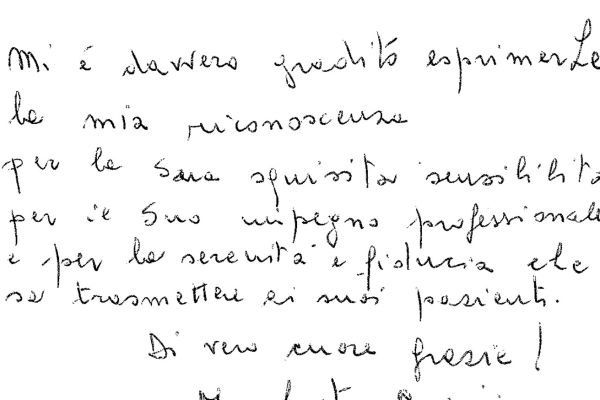 Mi é davvero gradito esprimerLe
la mia riconoscenza
per la Sua squisita sensibilità
per il Suo impegno professionale
e per la serenità e fiducia che
sa trasmettere ai suoi pazienti.
Di vero cuore grazie!